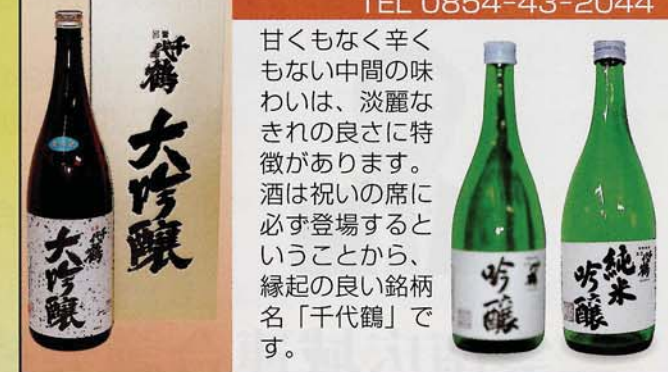 TEL 0854-43-2044
千代鶴
大吟醸
千代鶴
大吟醸
甘くもなく辛く
もない中間の味
わいは、淡麗な
きれの良さに特
徴があります。
酒は祝いの席に
必ず登場すると
いうことから、
縁起の良い銘柄
名「千代鶴」で
す。
吟醸
純米
吟醸